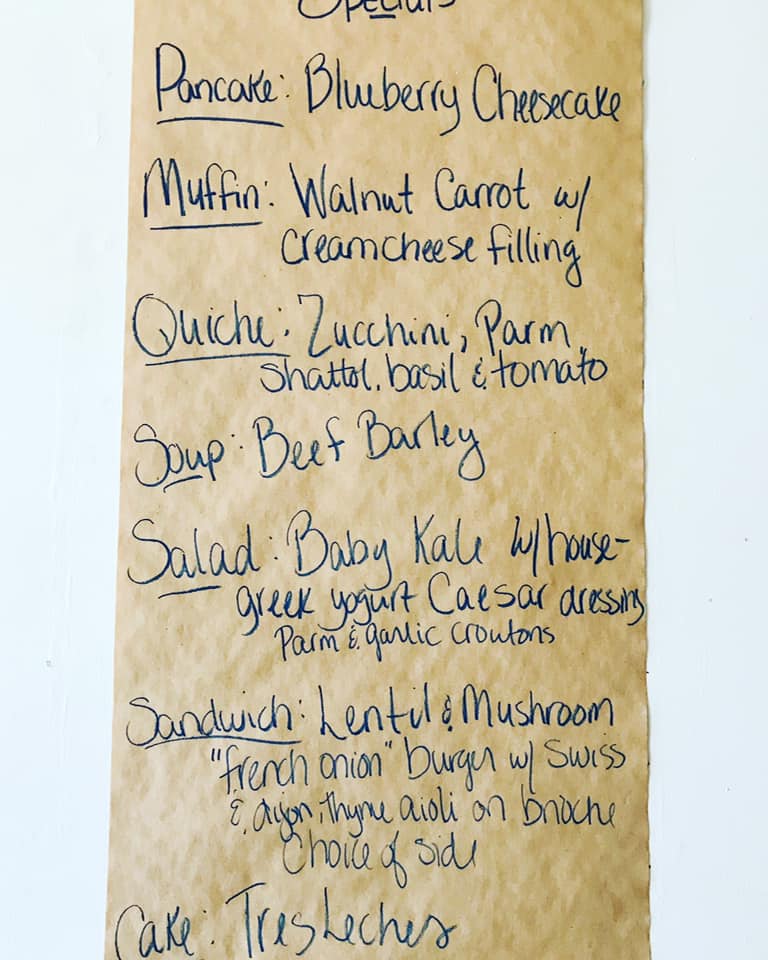 Specials
Pancake: Blueberry Cheesecake
Muffin: Walnut Carrot w/
creamcheese filling
Quiche: Zucchini, Parm,
shattol, basil & tomato
Soup: Beef Barley
Salad: Baby Kale w/house-
greek yogurt Caesar dressing
Parm & garlic croutons
Sandwich: Lentil & Mushroom
"french onion" burger w/ Swiss
& dijon, thyme aioli on brioche
Choice of side
Cake: Tres Leches